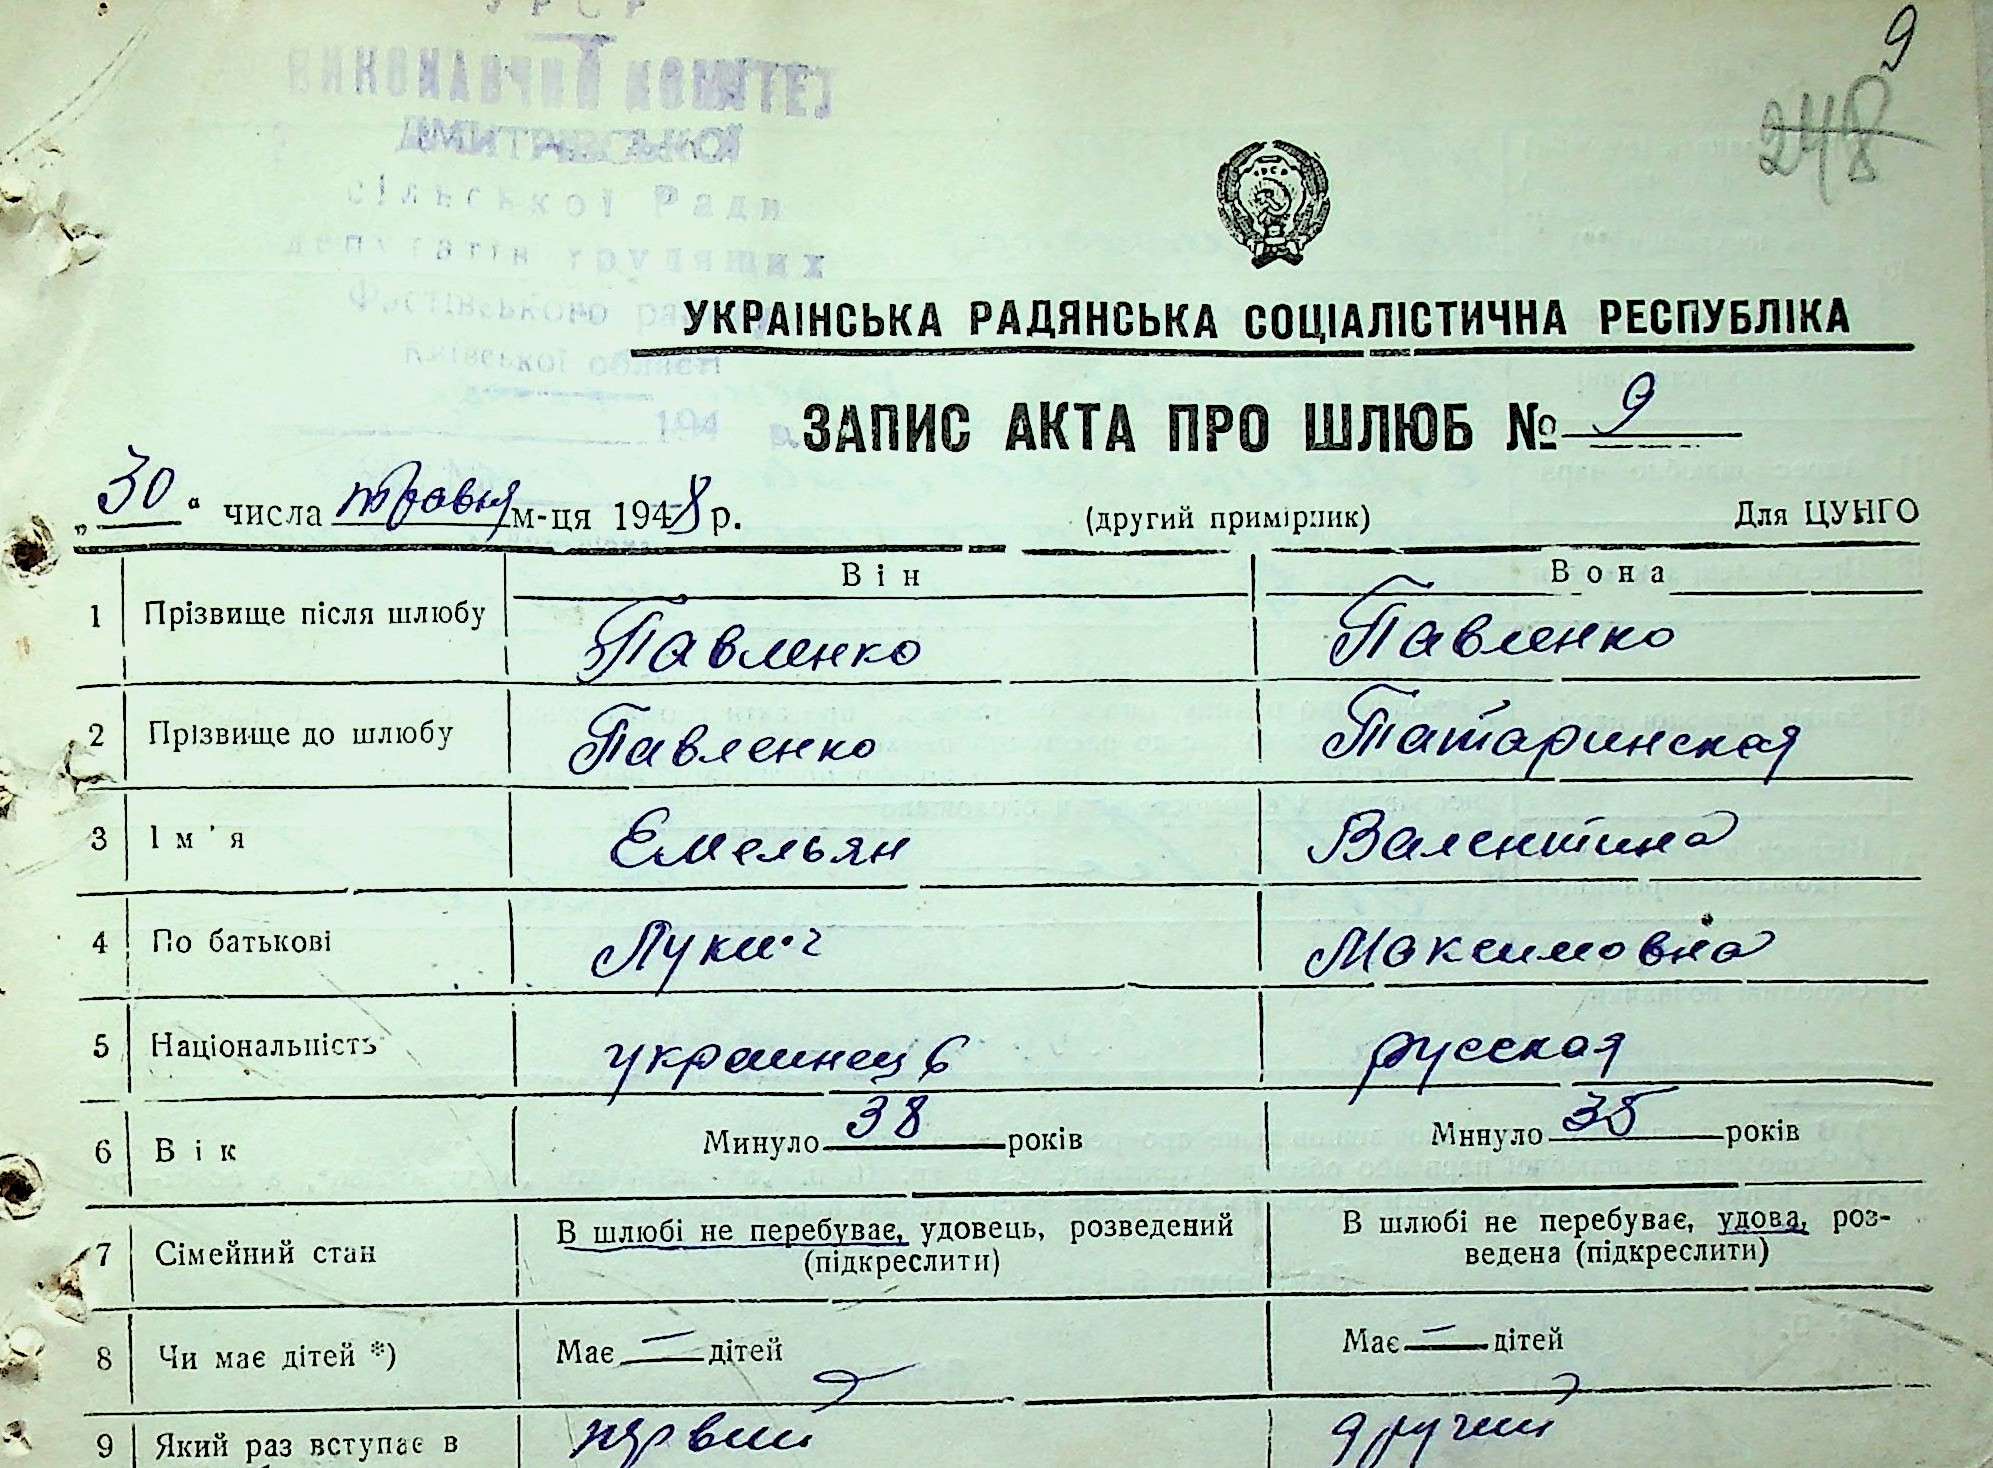 УРСР
9
ВИКОНАВЧИЙ КОМІТЕТ
248
ДМИТРІВСЬКОЇ
сільської Ради
депутатів трудящих
Фастівського району
Київської області
194 р.
УКРАІНСЬКА РАДЯНСЬКА СОЦІАЛІСТИЧНА РЕСПУБЛІКА
ЗАПИС АКТА ПРО ШЛЮБ № 9
„30“ числа травня м-ця 1948 р. (другий примірник) Для ЦУНГО
Він Вона
1 Прізвище після шлюбу Павленко Павленко
2 Прізвище до шлюбу Павленко Татаринская
3 Ім'я Емельян Валентина
4 По батькові Лукич Максимовна
5 Національність украинець русская
6 Вік Минуло 38 років Минуло 35 років
7 Сімейний стан В шлюбі не перебуває, удовець, розведений (підкреслити) В шлюбі не перебуває, удова, роз-
ведена (підкреслити)
8 Чи має дітей *) Має — дітей Має — дітей
9 Який раз вступає в первий другий